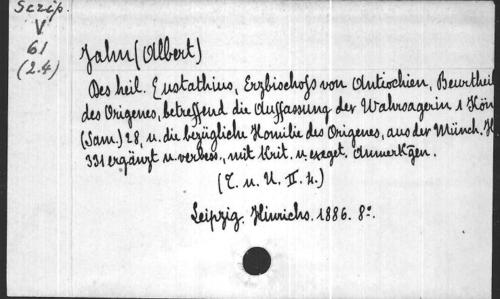 Scrip.
V
61
(2.4)
Jahn (Albert)
Des heil. Eustathius, Erzbischofs von Antiochien, Beurtheil
des Origenes, betreffend die Auffassung der Wahrsagerin 1 Kön
(Sam.) 28, u. die bezügliche Homilie des Origenes, aus der Münch. H
331 ergänzt u. verbess., mit krit. u. exeget. Anmerkgen.
(T. u. U. II. 4.)
Leipzig. Hinrichs. 1886. 8º.